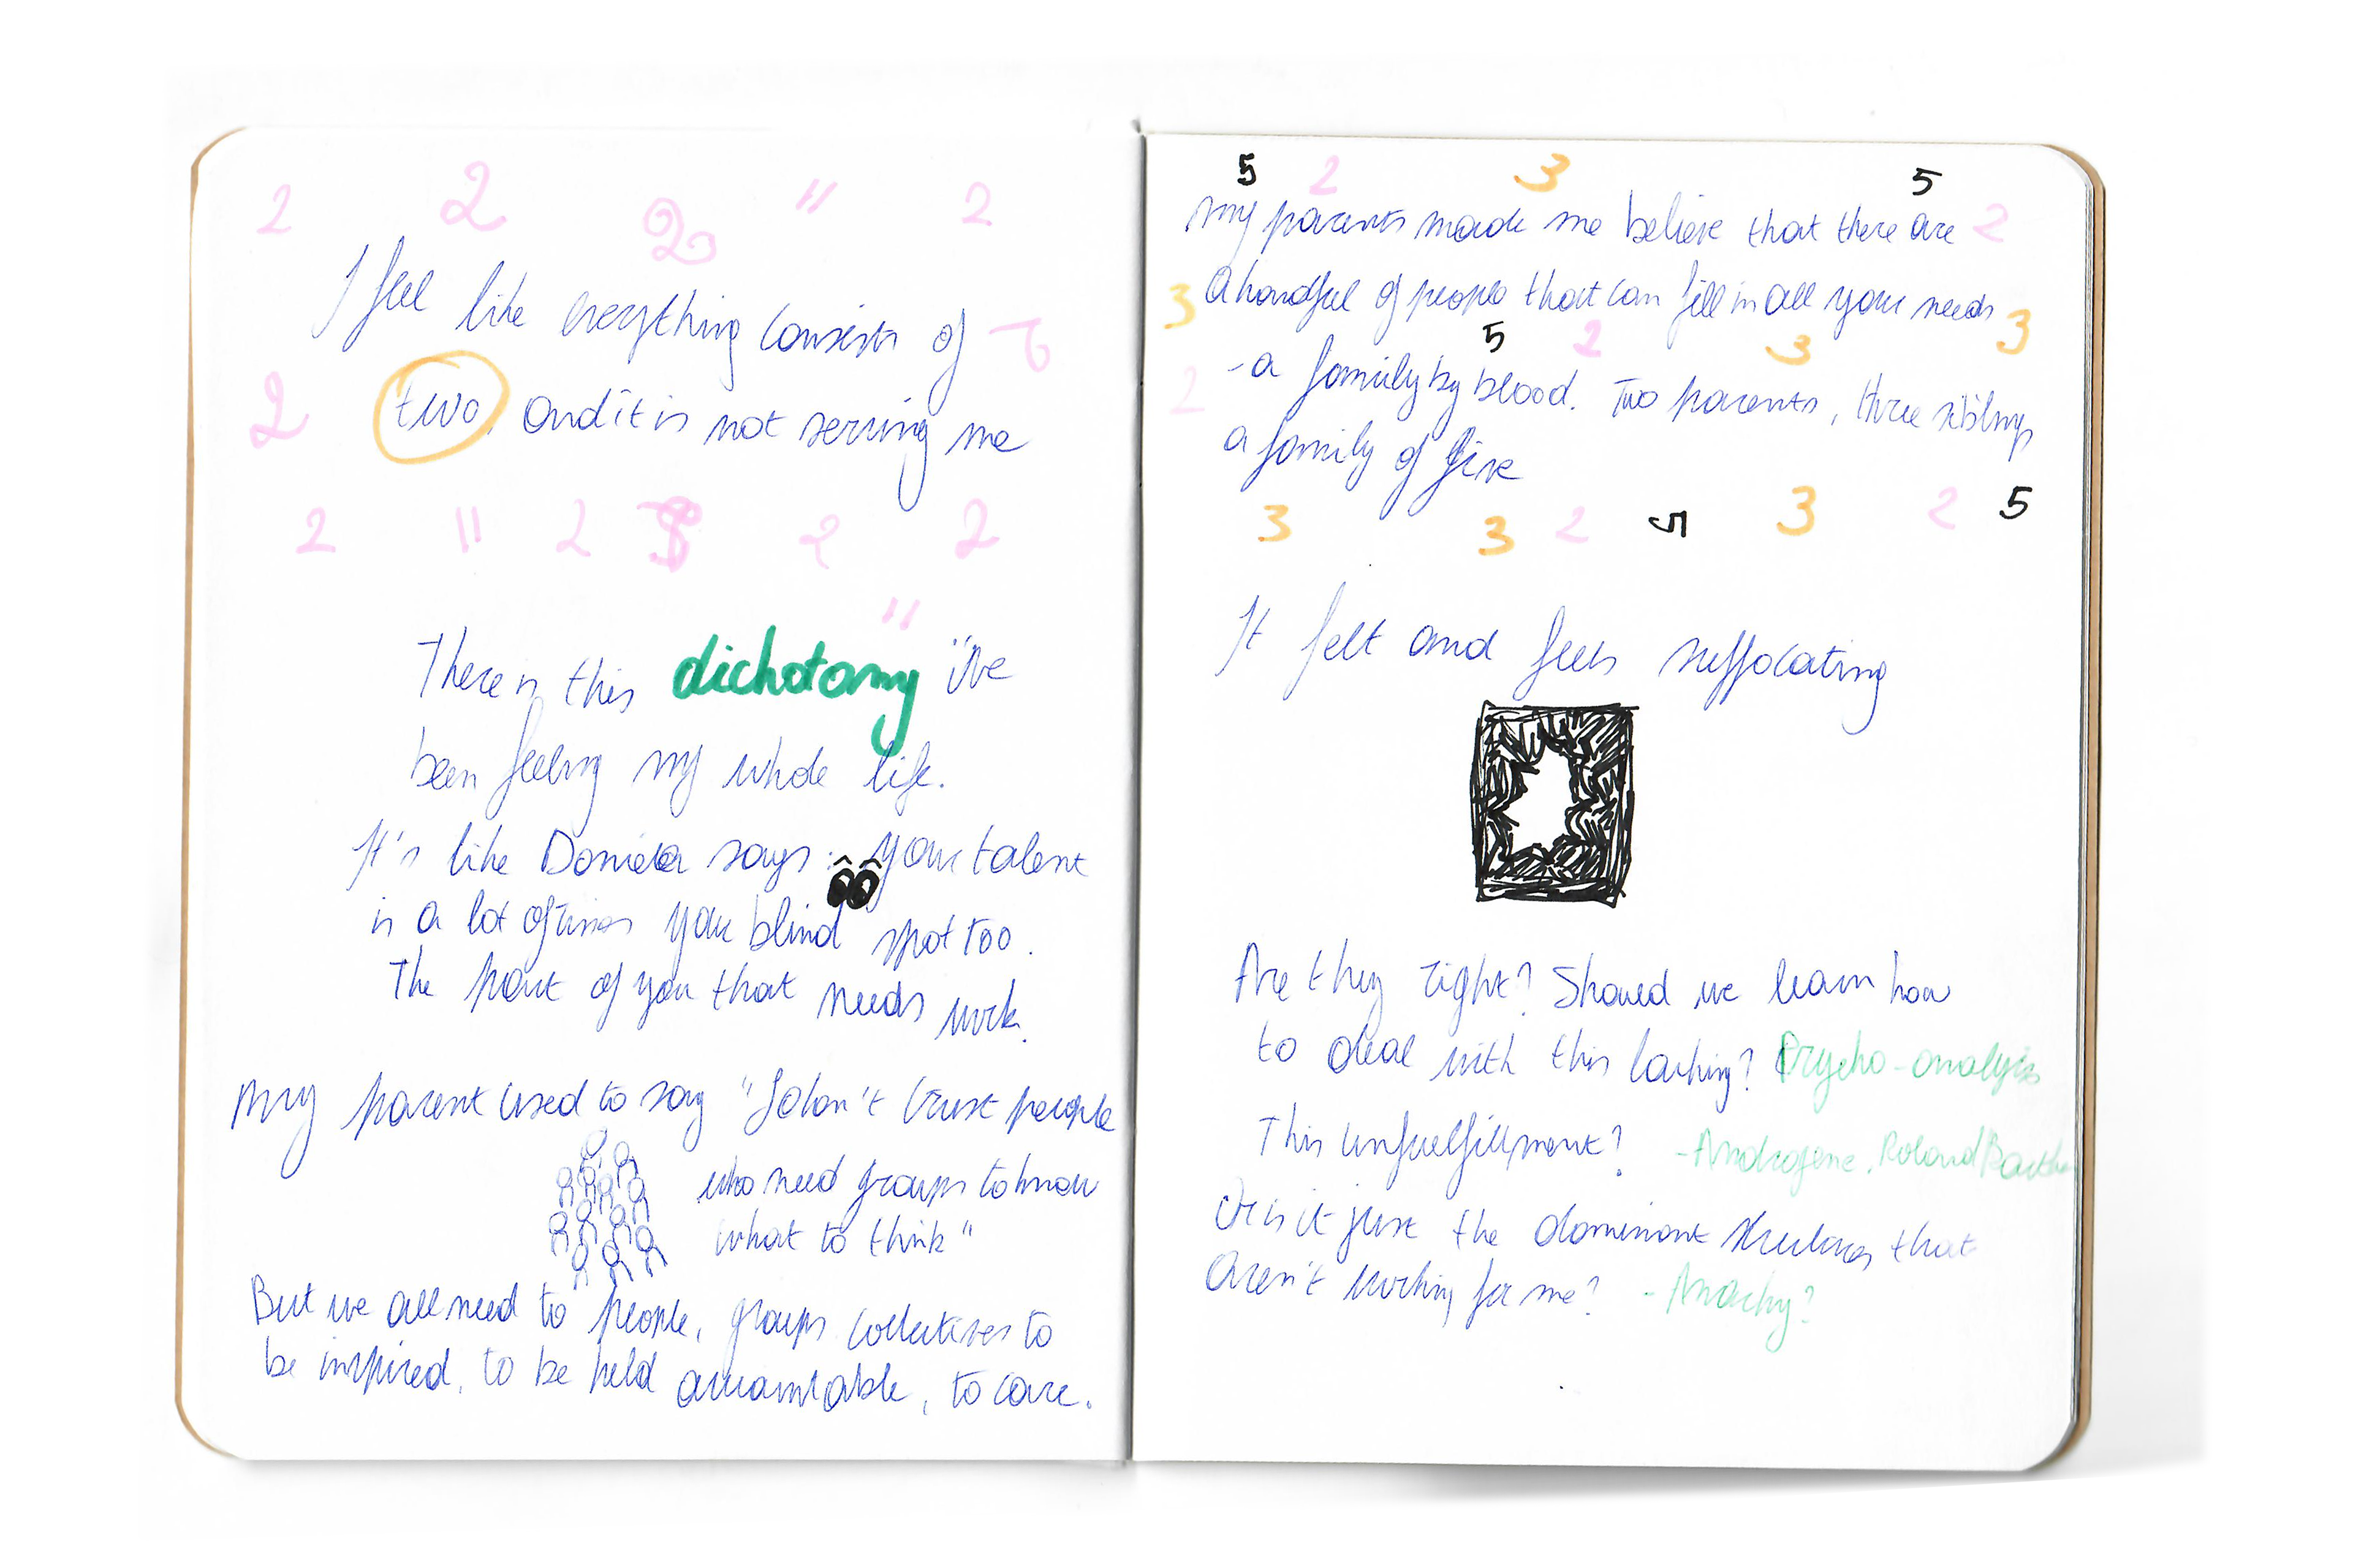 2 2 2 " 2
I feel like everything consists of 2
2 two, and it is not serving me
2 " 2 2 2
"
There is this dichotomy i've
been feeling my whole life.
It's like Daniela says: your talent
is a lot of times your blind spot too.
The part of you that needs work.
My parent used to say "I don't trust people
who need groups to know
what to think"
But we all need to people, groups collectives to
be inspired, to be held accountable, to care.
5 2 3 5
My parents made me believe that there are 2
3 a handful of people that can fill in all your needs 3
5 2 3
2 - a family by blood. Two parents, three siblings
a family of five
3 3 2 5 3 2 5
It felt and feels suffocating
Are they right? Should we learn how
to deal with this lacking? Psycho-analysis
This unfuelfillment? - Androgene, Roland Barthes
Or is it just the dominant structures that
aren't working for me? - Anarchy?